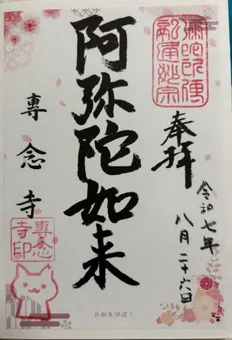 奉拝
令和七年
八月二十六日
阿弥陀如来
専念寺
専念
寺印